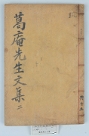 葛庵先生文集 二